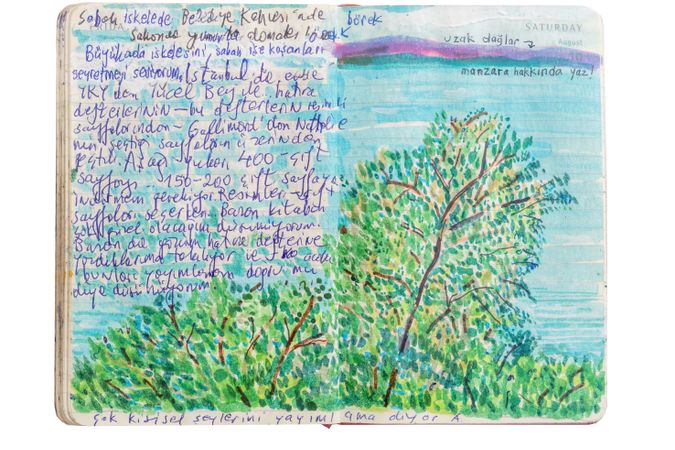 Sabah iskelede Belediye Kahvesi'nde börek
Sahanda yumurta domates
Büyükada iskelesini, sabah işe koşanları
seyretmeyi seviyorum. İstanbul'da evde
YKY'den Yücel Bey ile hatıra
defterlerinin—bu defterlerin resimli
sayfalarından Gallimard'dan Nathalie
nin seçtiği sayfaların üzerinden
geçtik. Aşağı yukarı 400 çift
sayfayı 150-200 çift sayfaya
indirmem gerekiyor. Resimleri
sayfaları seçerken bazan kitabın
güzel olacağını düşünüyorum.
Bazan da yazının hatıra defterine
yazdıklarıma takılıyor ve
bunları yayımlamam doğru mu
diye düşünüyorum
SATURDAY
August
uzak dağlar
manzara hakkında yaz!
çok kişisel şeylerini yayımlama diyor A